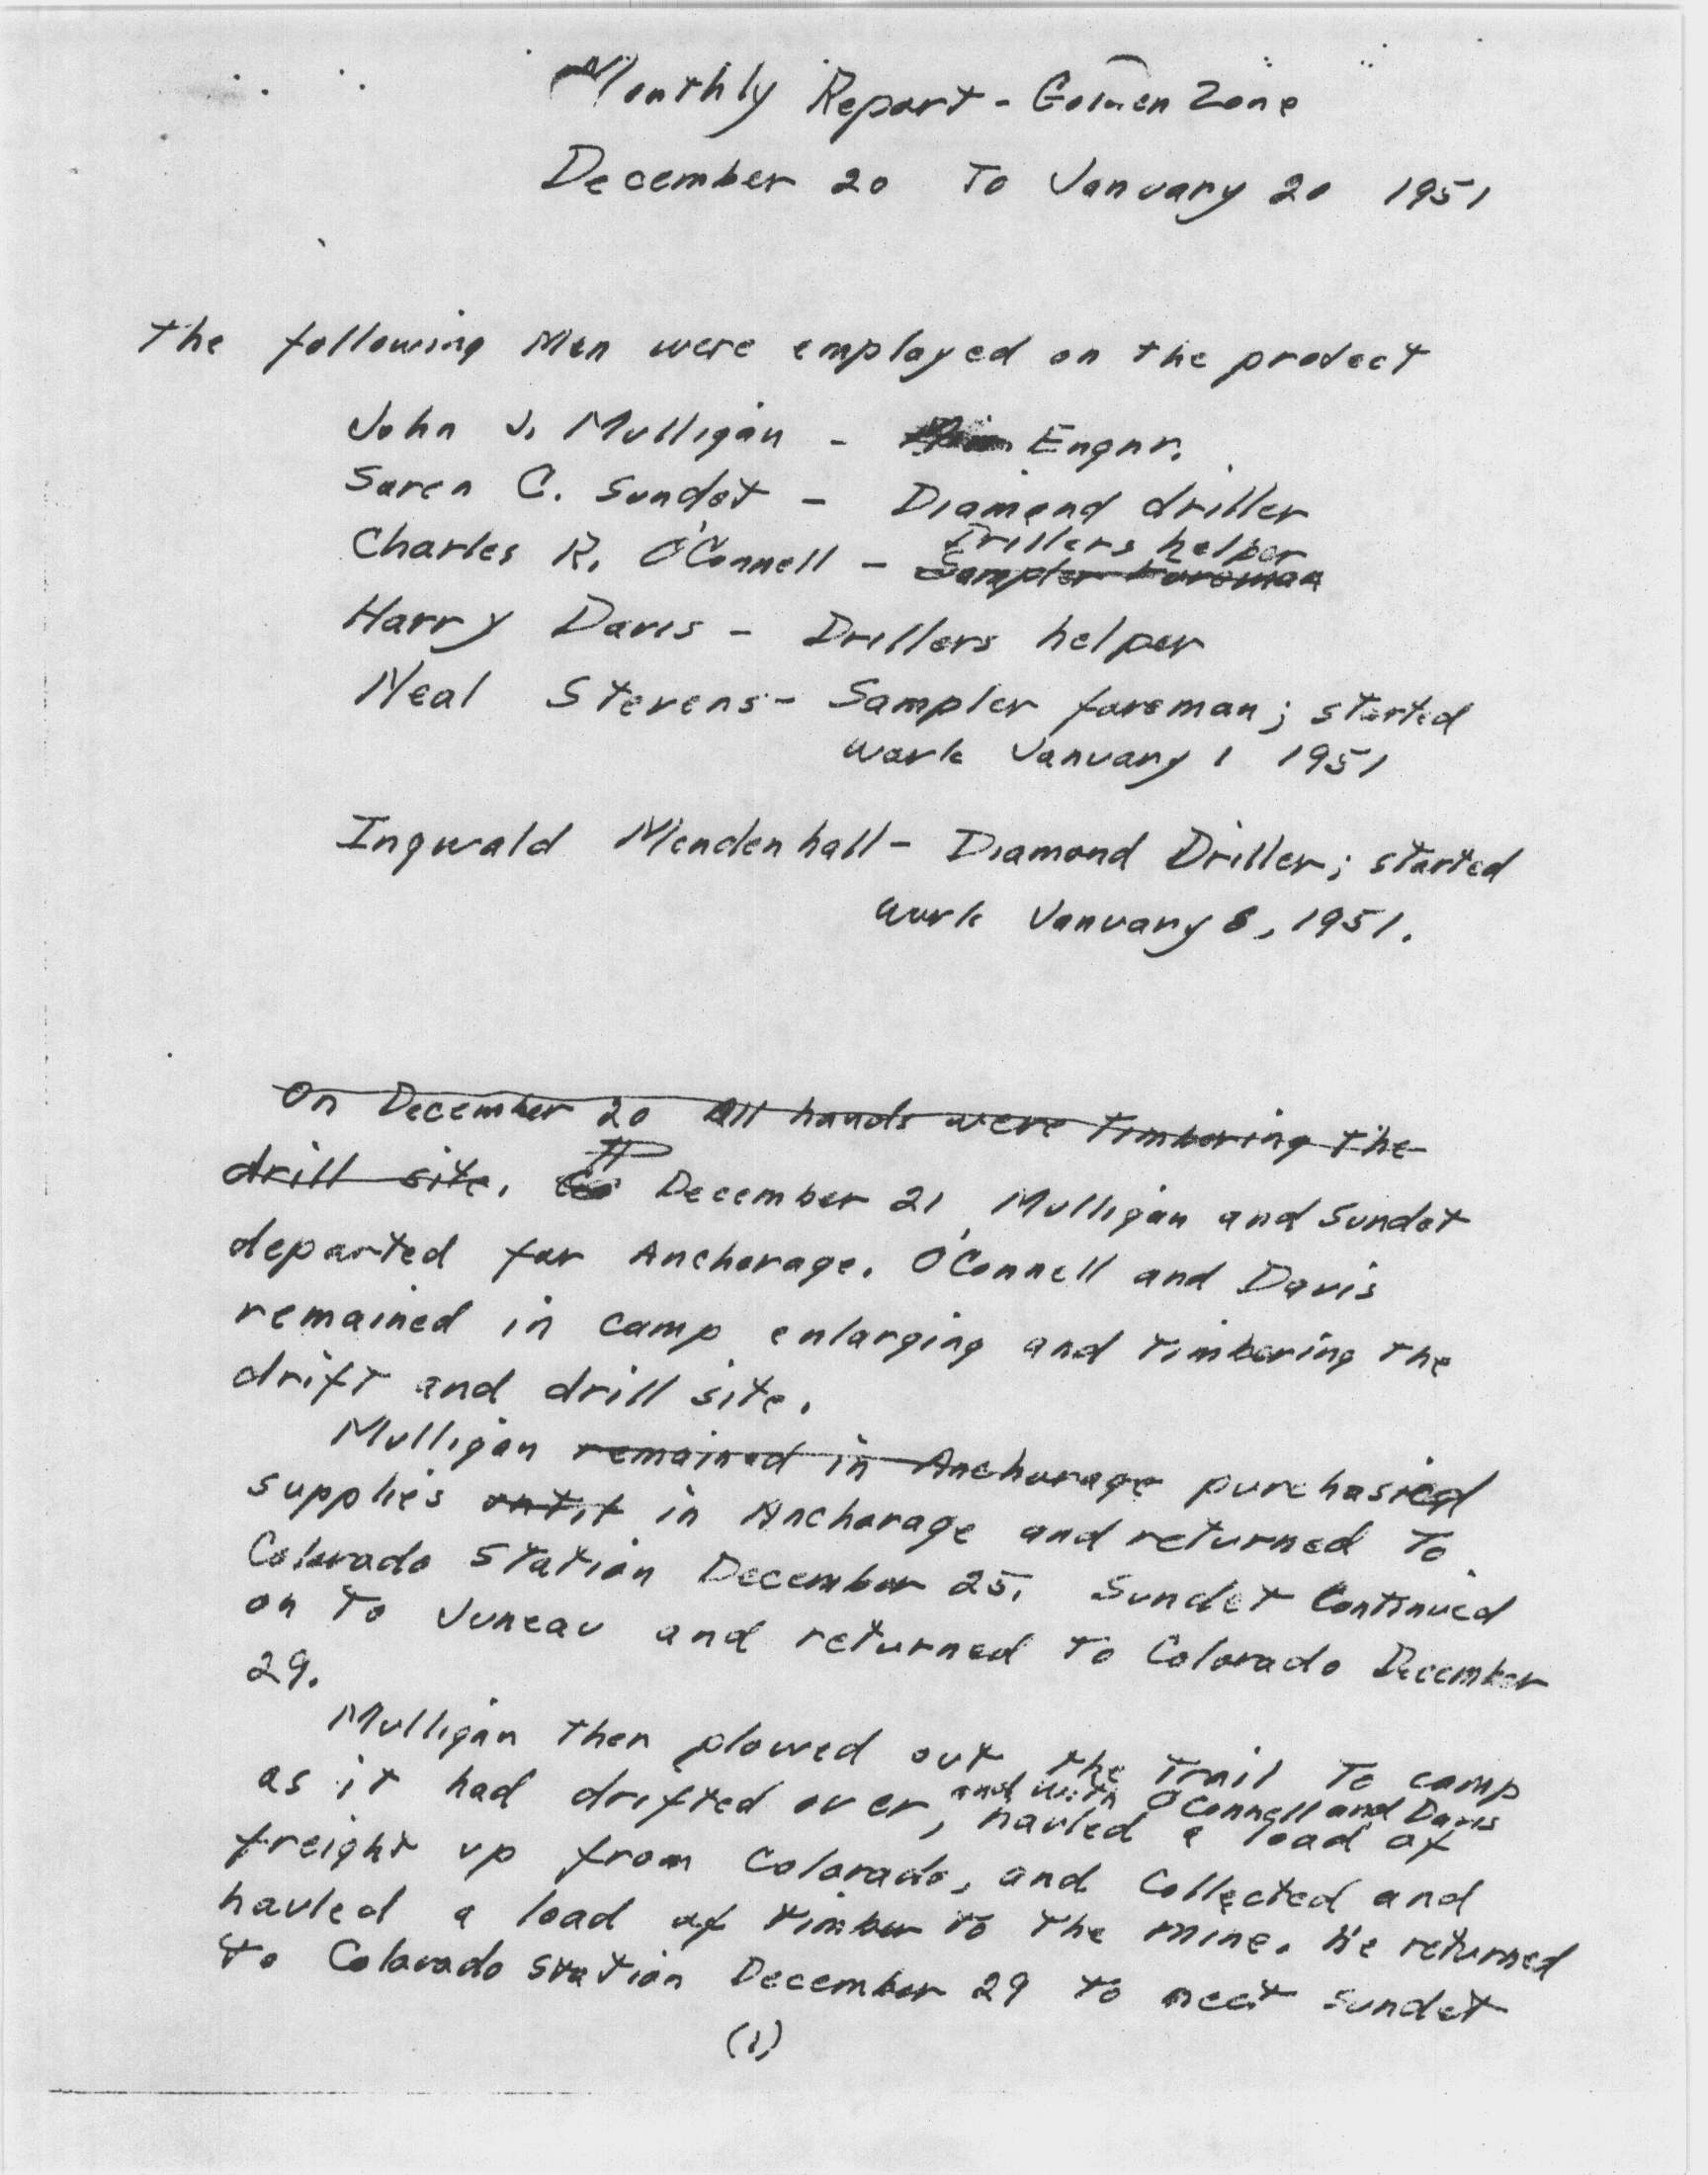 Monthly Report - Golden Zone
December 20 To January 20 1951
The following Men were employed on the project
John J. Mulligan - Engnr.
Soren C. Sundet - Diamond driller
Drillers helper
Charles R. O'Connell - Sampler foreman
Harry Davis - Drillers helper
Neal Stevens - Sampler foreman; started
work January 1 1951
Ingwald Mendenhall - Diamond Driller; started
work January 8, 1951.
On December 20 All hands were timbering the
drill site. December 21, Mulligan and Sundet
departed for Anchorage. O'Connell and Davis
remained in camp enlarging and timbering the
drift and drill site.
Mulligan remained in Anchorage purchased
supplies until in Anchorage and returned To
Colorado Station December 25. Sundet Continued
on To Juneau and returned To Colorado December
29.
Mulligan then plowed out the Trail To camp
and with O'Connell and Davis
as it had drifted over, hauled a load of
freight up from Colorado, and collected and
hauled a load of timber to the mine. He returned
To Colorado Station December 29 To meet Sundet
(1)